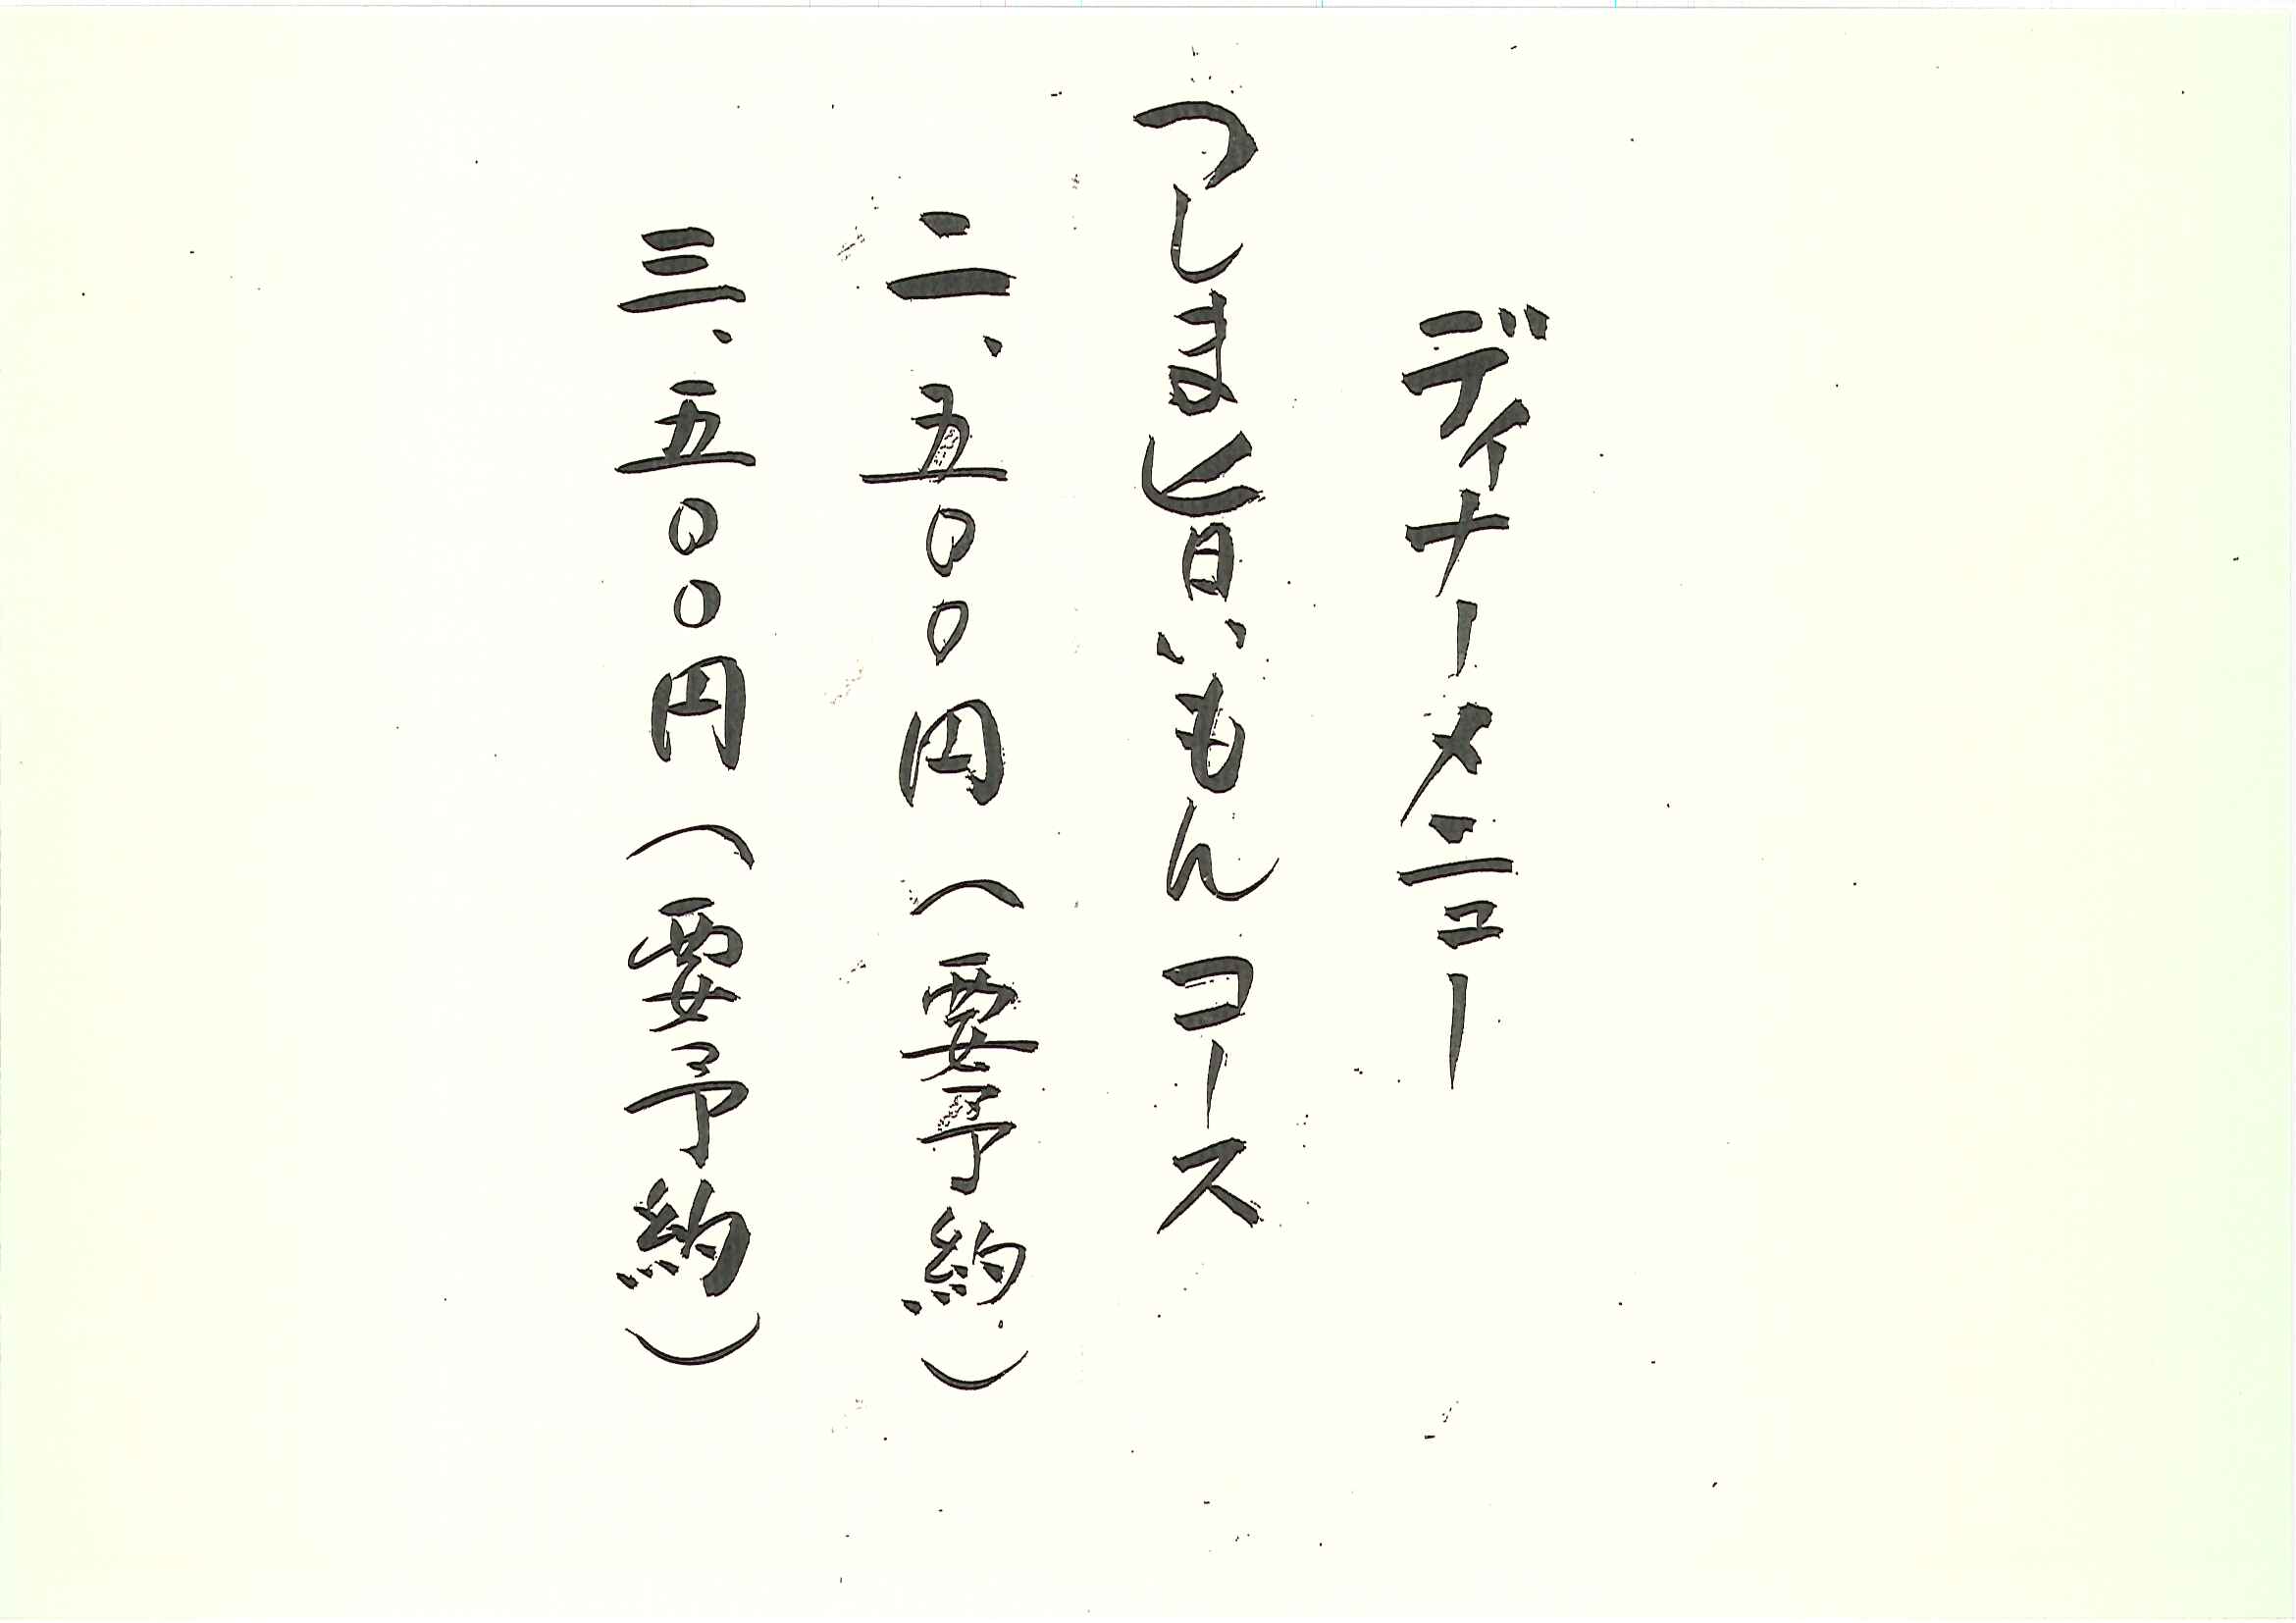 ディナーメニュー
つしま旨いもんコース
二、五〇〇円(要予約)
三、五〇〇円(要予約)